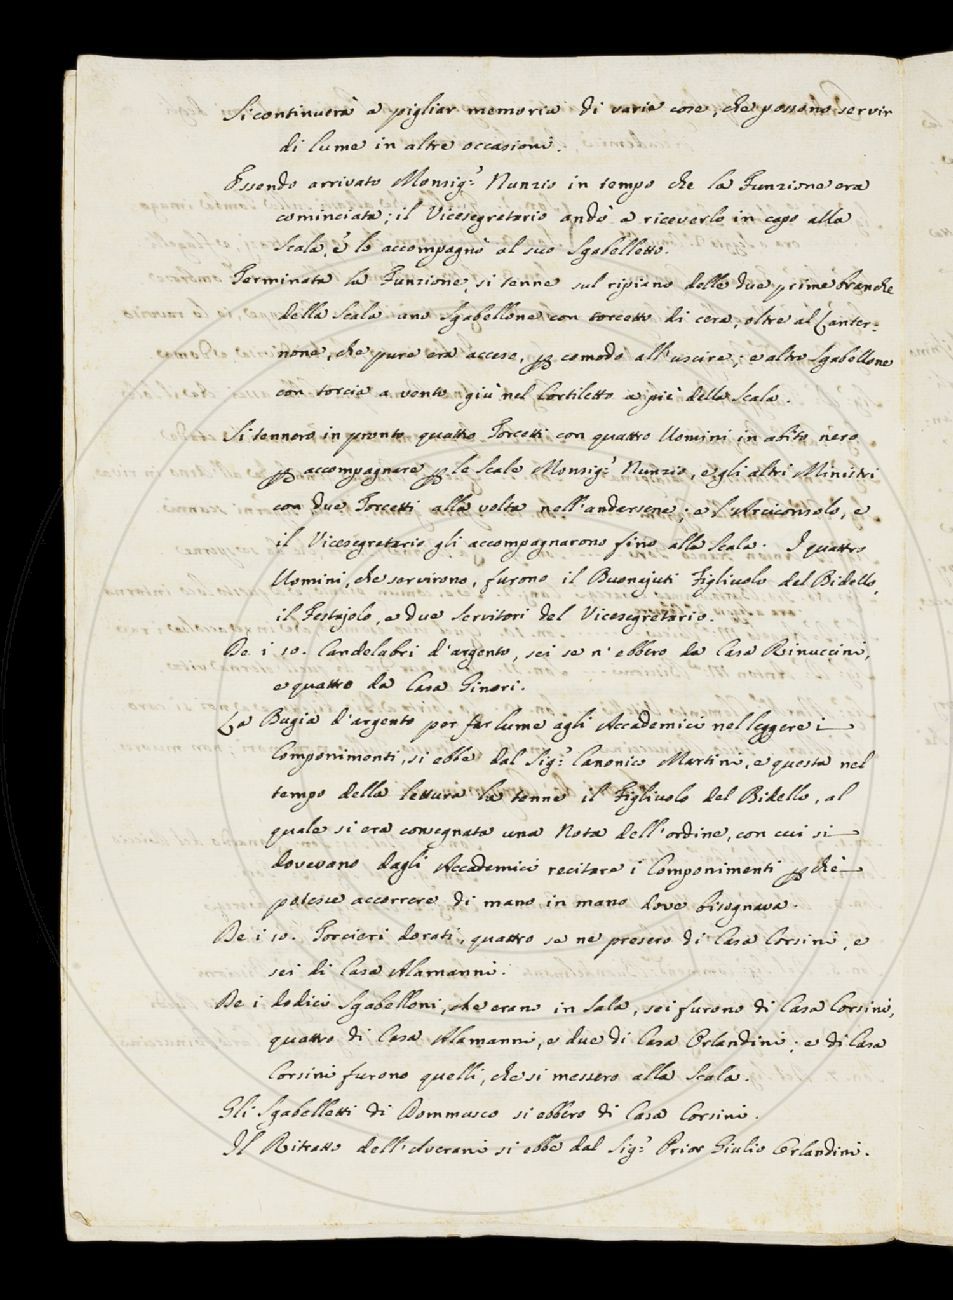 Si continuerà a pigliar memoria di varie cose, che possono servir
di lume in altre occasioni.
Essendo arrivato Monsig.r Nunzio in tempo che la Funzione era
cominciata; il Vicesegretario andò a riceverlo in capo alla
Scala, e lo accompagnò al suo Sgabelletto.
Terminata la Funzione, si tenne sul ripiano delle due prime branche
della Scala uno Sgabellone con torcetto di cera, oltre al Lanter-
none, che pure era acceso, p comodo all'uscire; e altro Sgabellone
con torcia a vento giù nel Cortiletto a piè della Scala.
Si tennero in pronto quattro Torcetti con quattro Uomini in abito nero
p accompagnare p le Scale Monsig.r Nunzio, e gli altri Ministri
con due Torcetti alla volta nell'andarsene; e l'Arciconsolo, e
il Vicesegretario gli accompagnarono fino alla Scala. I quattro
Uomini, che servirono, furono il Buonajuti Figliuolo del Bidello,
il Festajolo, e due Servitori del Vicesegretario.
De i 10. Candelabri d'argento, sei se n'ebbero da Casa Rinuccini,
e quattro da Casa Ginori.
La Bugia d'argento per far lume agli Accademici nel leggere i
Componimenti, si ebbe dal Sig.r Canonico Martini, e questa nel
tempo della lettura la tenne il Figliuolo del Bidello, al
quale si era consegnata una Nota dell'ordine, con cui si
dovevano dagli Accademici recitare i Componimenti p chè
potesse accorrere di mano in mano dove bisognava.
De i 10. Torcieri dorati, quattro se ne presero di Casa Corsini, e
sei di Casa Alamanni.
De i dodici Sgabelloni, che erano in Sala, sei furono di Casa Corsini,
quattro di Casa Alamanni, e due di Casa Orlandini; e di Casa
Corsini furono quelli, che si messero alla Scala.
Gli Sgabelletti di Dommasco si ebbero di Casa Corsini.
Il Ritratto dell'Averani si ebbe dal Sig.r Prior Giulio Orlandini.